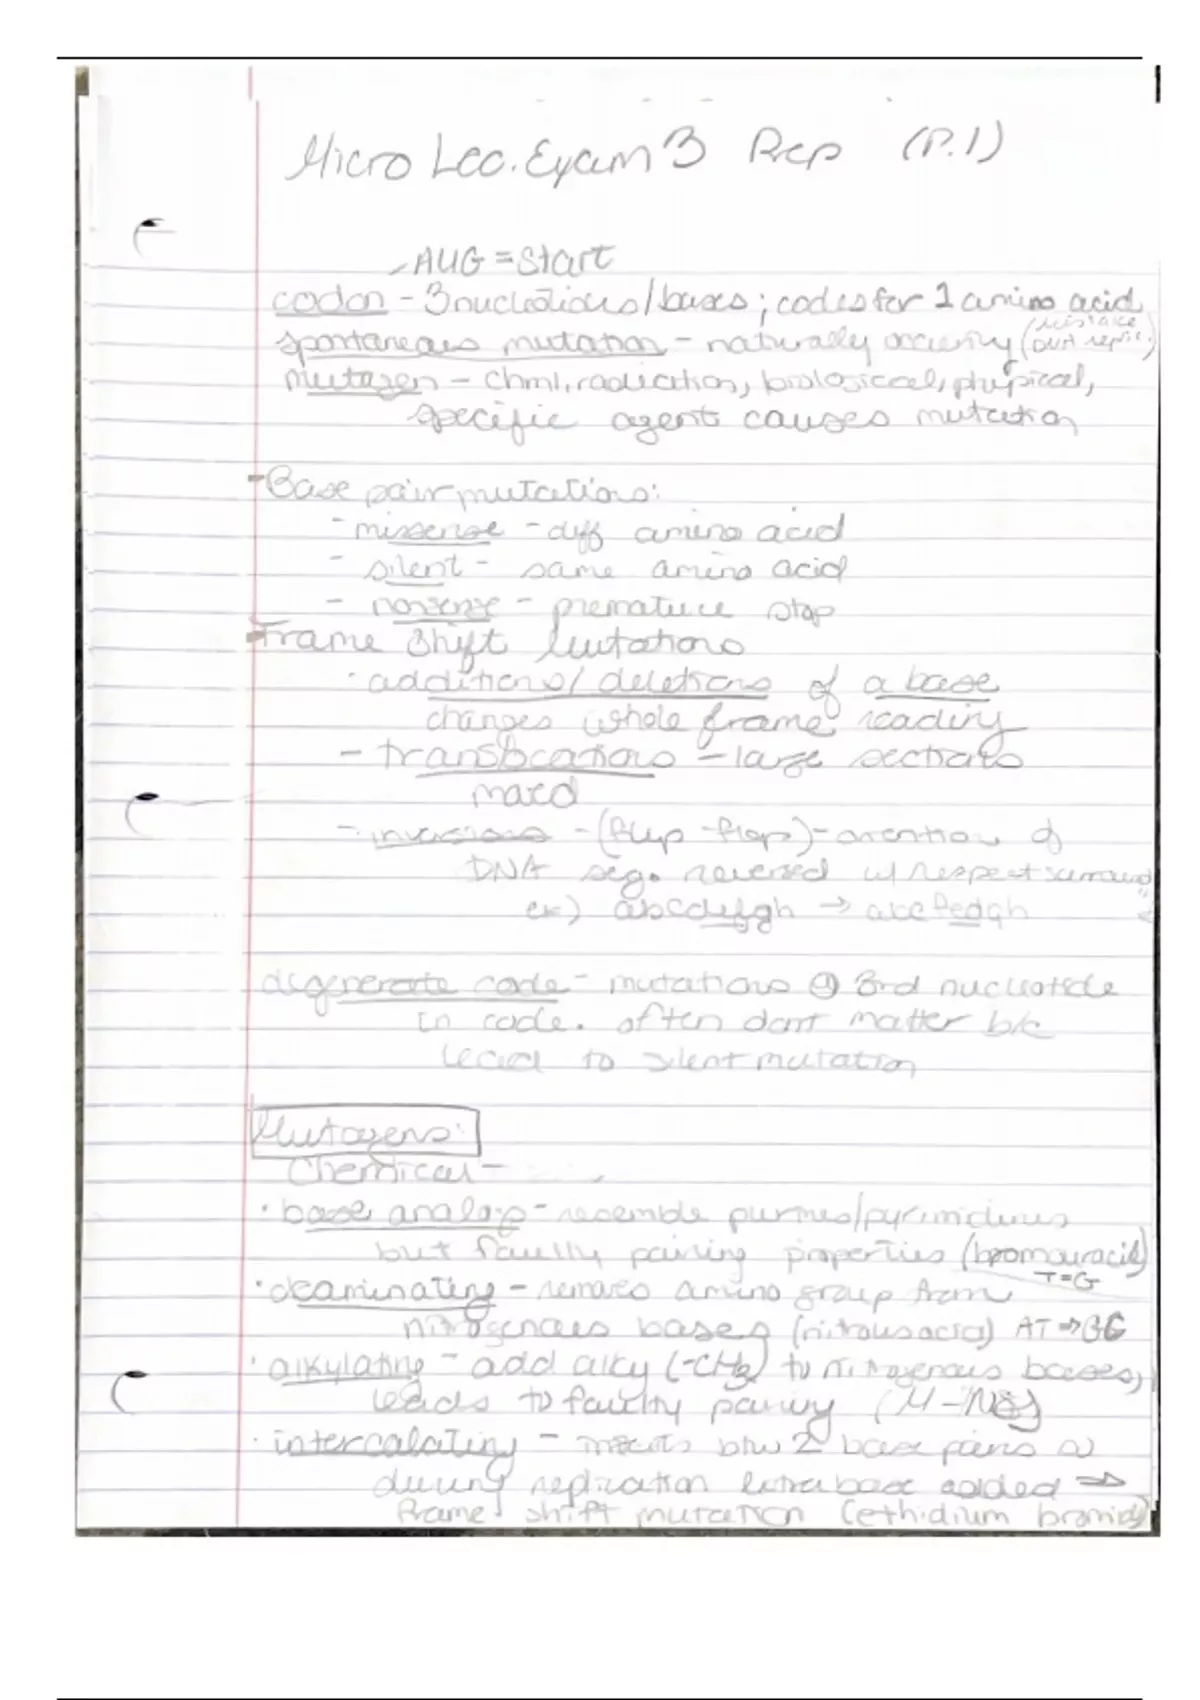 Micro Lec. Exam 3 Prep (P.1)
- AUG = Start
codon - 3 nucleotides/bases; codes for 1 amino acid
spontaneous mutation - naturally occuring (mistake
durt replic.)
mutagen - chml, radiation, biological, physical,
specific agent causes mutation
- Base pair mutations:
- missense - diff amino acid
- silent - same amino acid
- nonsense - premature stop
- Frame Shift Mutations
· additions/deletions of a base
changes whole frame reading
- translocations - large sections
moved
- inversions - (flip-flop) - orention of
DNA seg. reversed w/ respect
ex) abcdefgh → abcfedgh
degenerate code - mutations @ 3rd nucleotide
in code. often dont matter b/c
lead to silent mutation
Mutagens:
Chemical -
· base analogs - resemble purines/pyrimidines
but faulty pairing properties (bromouracil)
T=G
· deaminating - removes amino group from
nitrogenous bases (nitrous acid) AT ⇒ GC
· alkylating - add alky (-CH3) to nitrogenous bases,
leads to faulty pairing
· intercalating - inserts btw 2 base pairs
during replication extra base added ⇒
frame shift mutation (ethidium bromide)